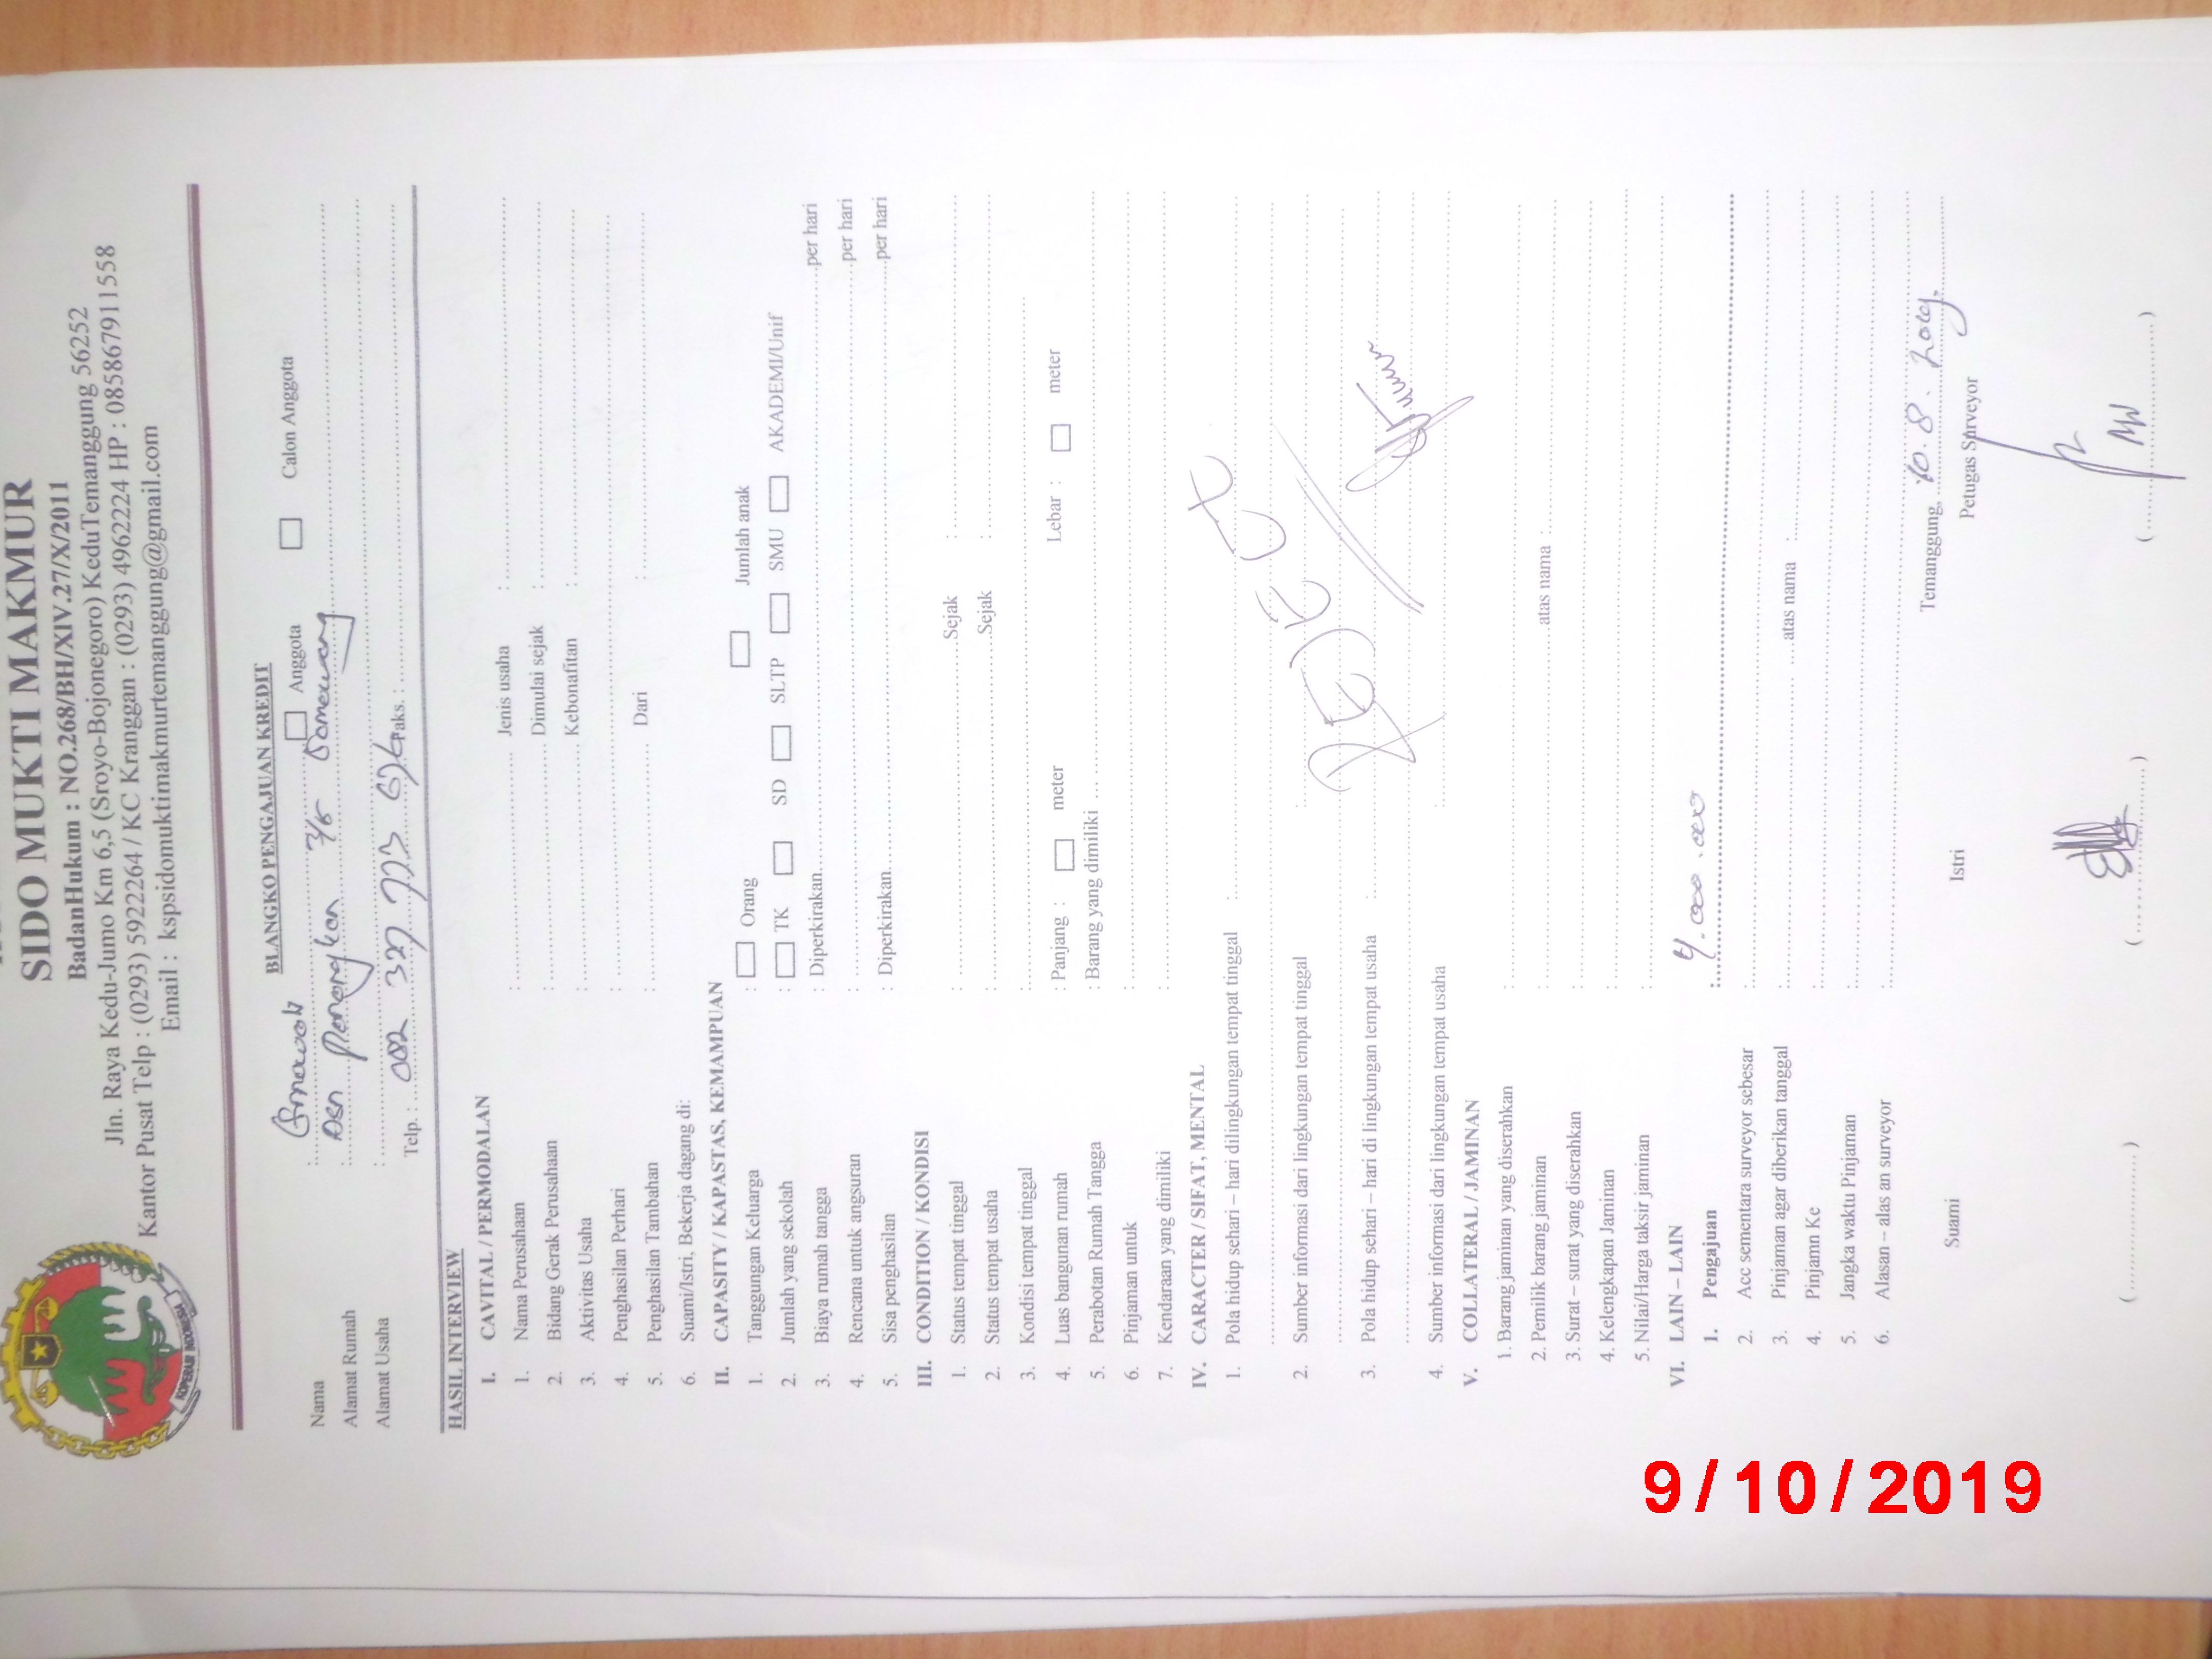 SIDO MUKTI MAKMUR
BadanHukum : NO.268/BH/XIV.27/X/2011
Jln. Raya Kedu-Jumo Km 6,5 (Sroyo-Bojonegoro) KeduTemanggung 56252
Kantor Pusat Telp : (0293) 5922264 / KC Kranggan : (0293) 4962224 HP : 085867911558
Email : kspsidomuktimakmurtemanggung@gmail.com
KOPERASI INDONESIA
BLANGKO PENGAJUAN KREDIT
Anggota Calon Anggota
Nama :
Alamat Rumah : Dsn
Alamat Usaha :
Telp. : 082 327 773 Faks. :
HASIL INTERVIEW
I. CAVITAL / PERMODALAN
1. Nama Perusahaan : Jenis usaha :
2. Bidang Gerak Perusahaan : Dimulai sejak :
3. Aktivitas Usaha : Kebonafitan :
4. Penghasilan Perhari :
5. Penghasilan Tambahan : Dari :
6. Suami/Istri, Bekerja dagang di:
II. CAPASITY / KAPASTAS, KEMAMPUAN
1. Tanggungan Keluarga : Orang Jumlah anak
2. Jumlah yang sekolah : TK SD SLTP SMU AKADEMI/Unif
3. Biaya rumah tangga : Diperkirakan per hari
4. Rencana untuk angsuran : per hari
5. Sisa penghasilan : Diperkirakan per hari
III. CONDITION / KONDISI
1. Status tempat tinggal : Sejak :
2. Status tempat usaha : Sejak :
3. Kondisi tempat tinggal :
4. Luas bangunan rumah : Panjang : meter Lebar : meter
5. Perabotan Rumah Tangga : Barang yang dimiliki
6. Pinjaman untuk :
7. Kendaraan yang dimiliki :
IV. CARACTER / SIFAT, MENTAL
1. Pola hidup sehari – hari dilingkungan tempat tinggal :
2. Sumber informasi dari lingkungan tempat tinggal :
3. Pola hidup sehari – hari di lingkungan tempat usaha :
4. Sumber informasi dari lingkungan tempat usaha :
V. COLLATERAL / JAMINAN
1. Barang jaminan yang diserahkan :
2. Pemilik barang jaminan : atas nama
3. Surat – surat yang diserahkan :
4. Kelengkapan Jaminan :
5. Nilai/Harga taksir jaminan :
VI. LAIN – LAIN
1. Pengajuan : 4.000.000
2. Acc sementara surveyor sebesar :
3. Pinjaman agar diberikan tanggal : atas nama :
4. Pinjamn Ke :
5. Jangka waktu Pinjaman :
6. Alasan – alas an surveyor :
Temanggung, 10. 8. 2019.
Suami Istri Petugas Surveyor
9/10/2019